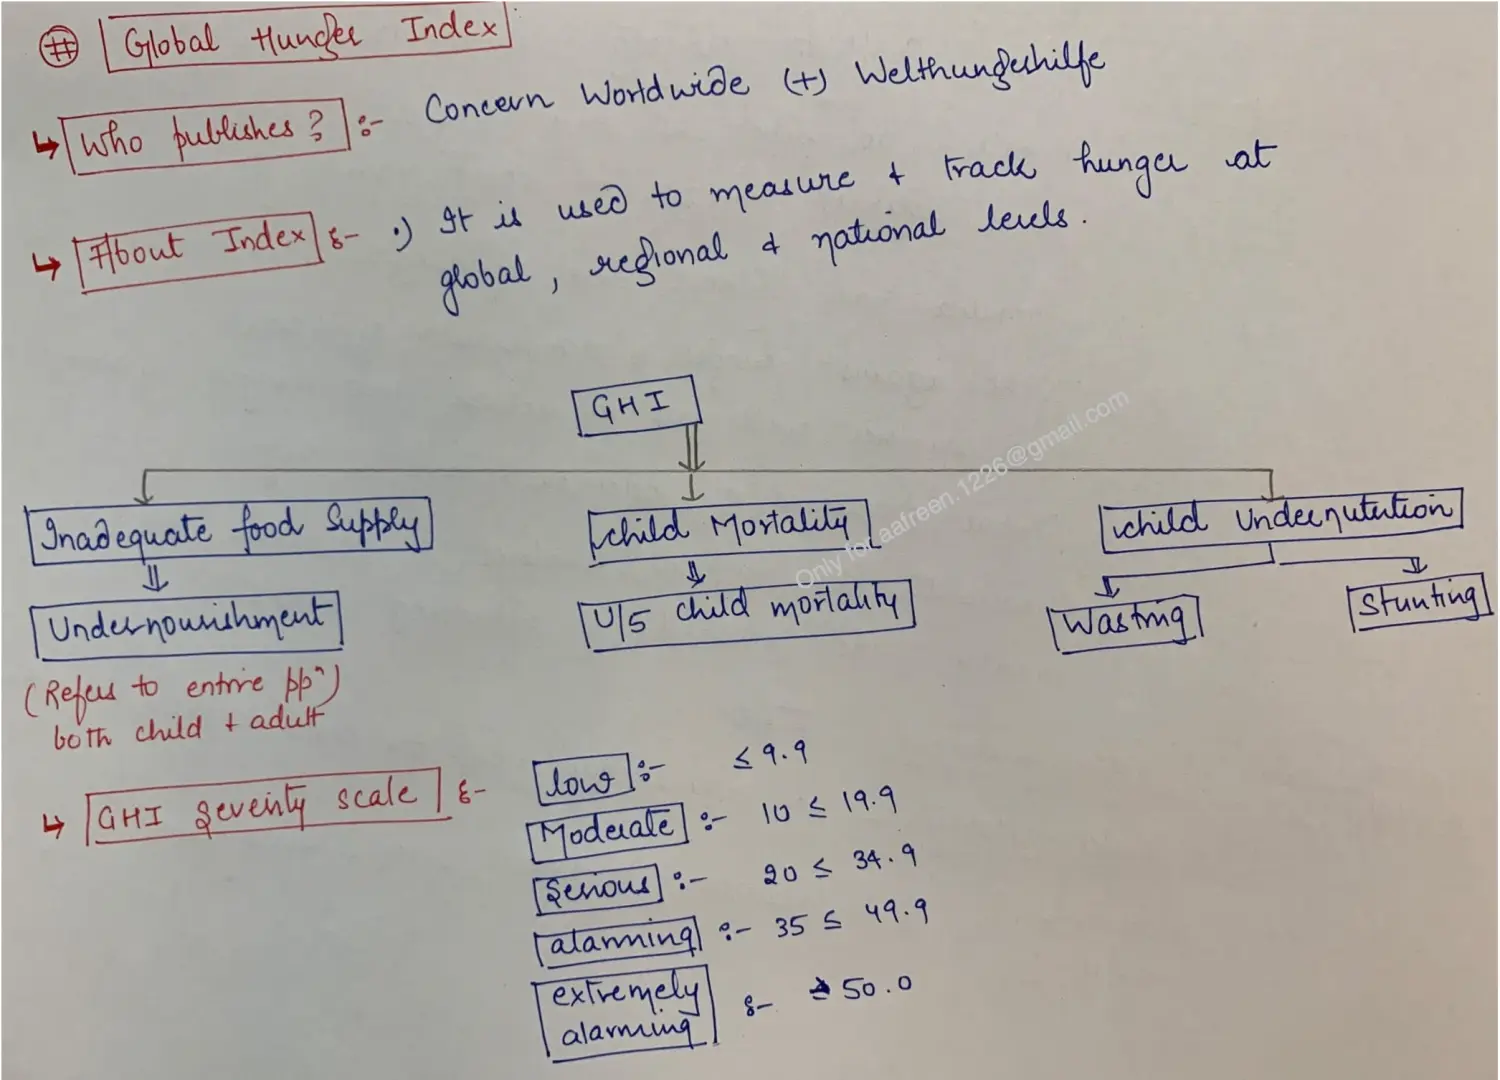 # Global Hunger Index
↳ Who publishes? :- Concern Worldwide (+) Welthungerhilfe
↳ About Index :- •) It is used to measure & track hunger at
global, regional & national levels.
GHI
Inadequate food Supply
child Mortality
child Undernutrition
Undernourishment
U/5 child mortality
Wasting
Stunting
(Refers to entire ppⁿ)
both child + adult
↳ GHI Severity scale :-
low :- ≤ 9.9
Moderate :- 10 ≤ 19.9
Serious :- 20 ≤ 34.9
alarming :- 35 ≤ 49.9
extremely
alarming :- ≥ 50.0
Only for aafreen.1226@gmail.com